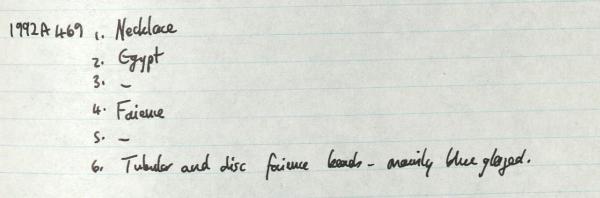 1992A469 1. Necklace
2. Egypt
3. –
4. Faience
5. –
6. Tubular and disc faience beads – mainly blue glazed.